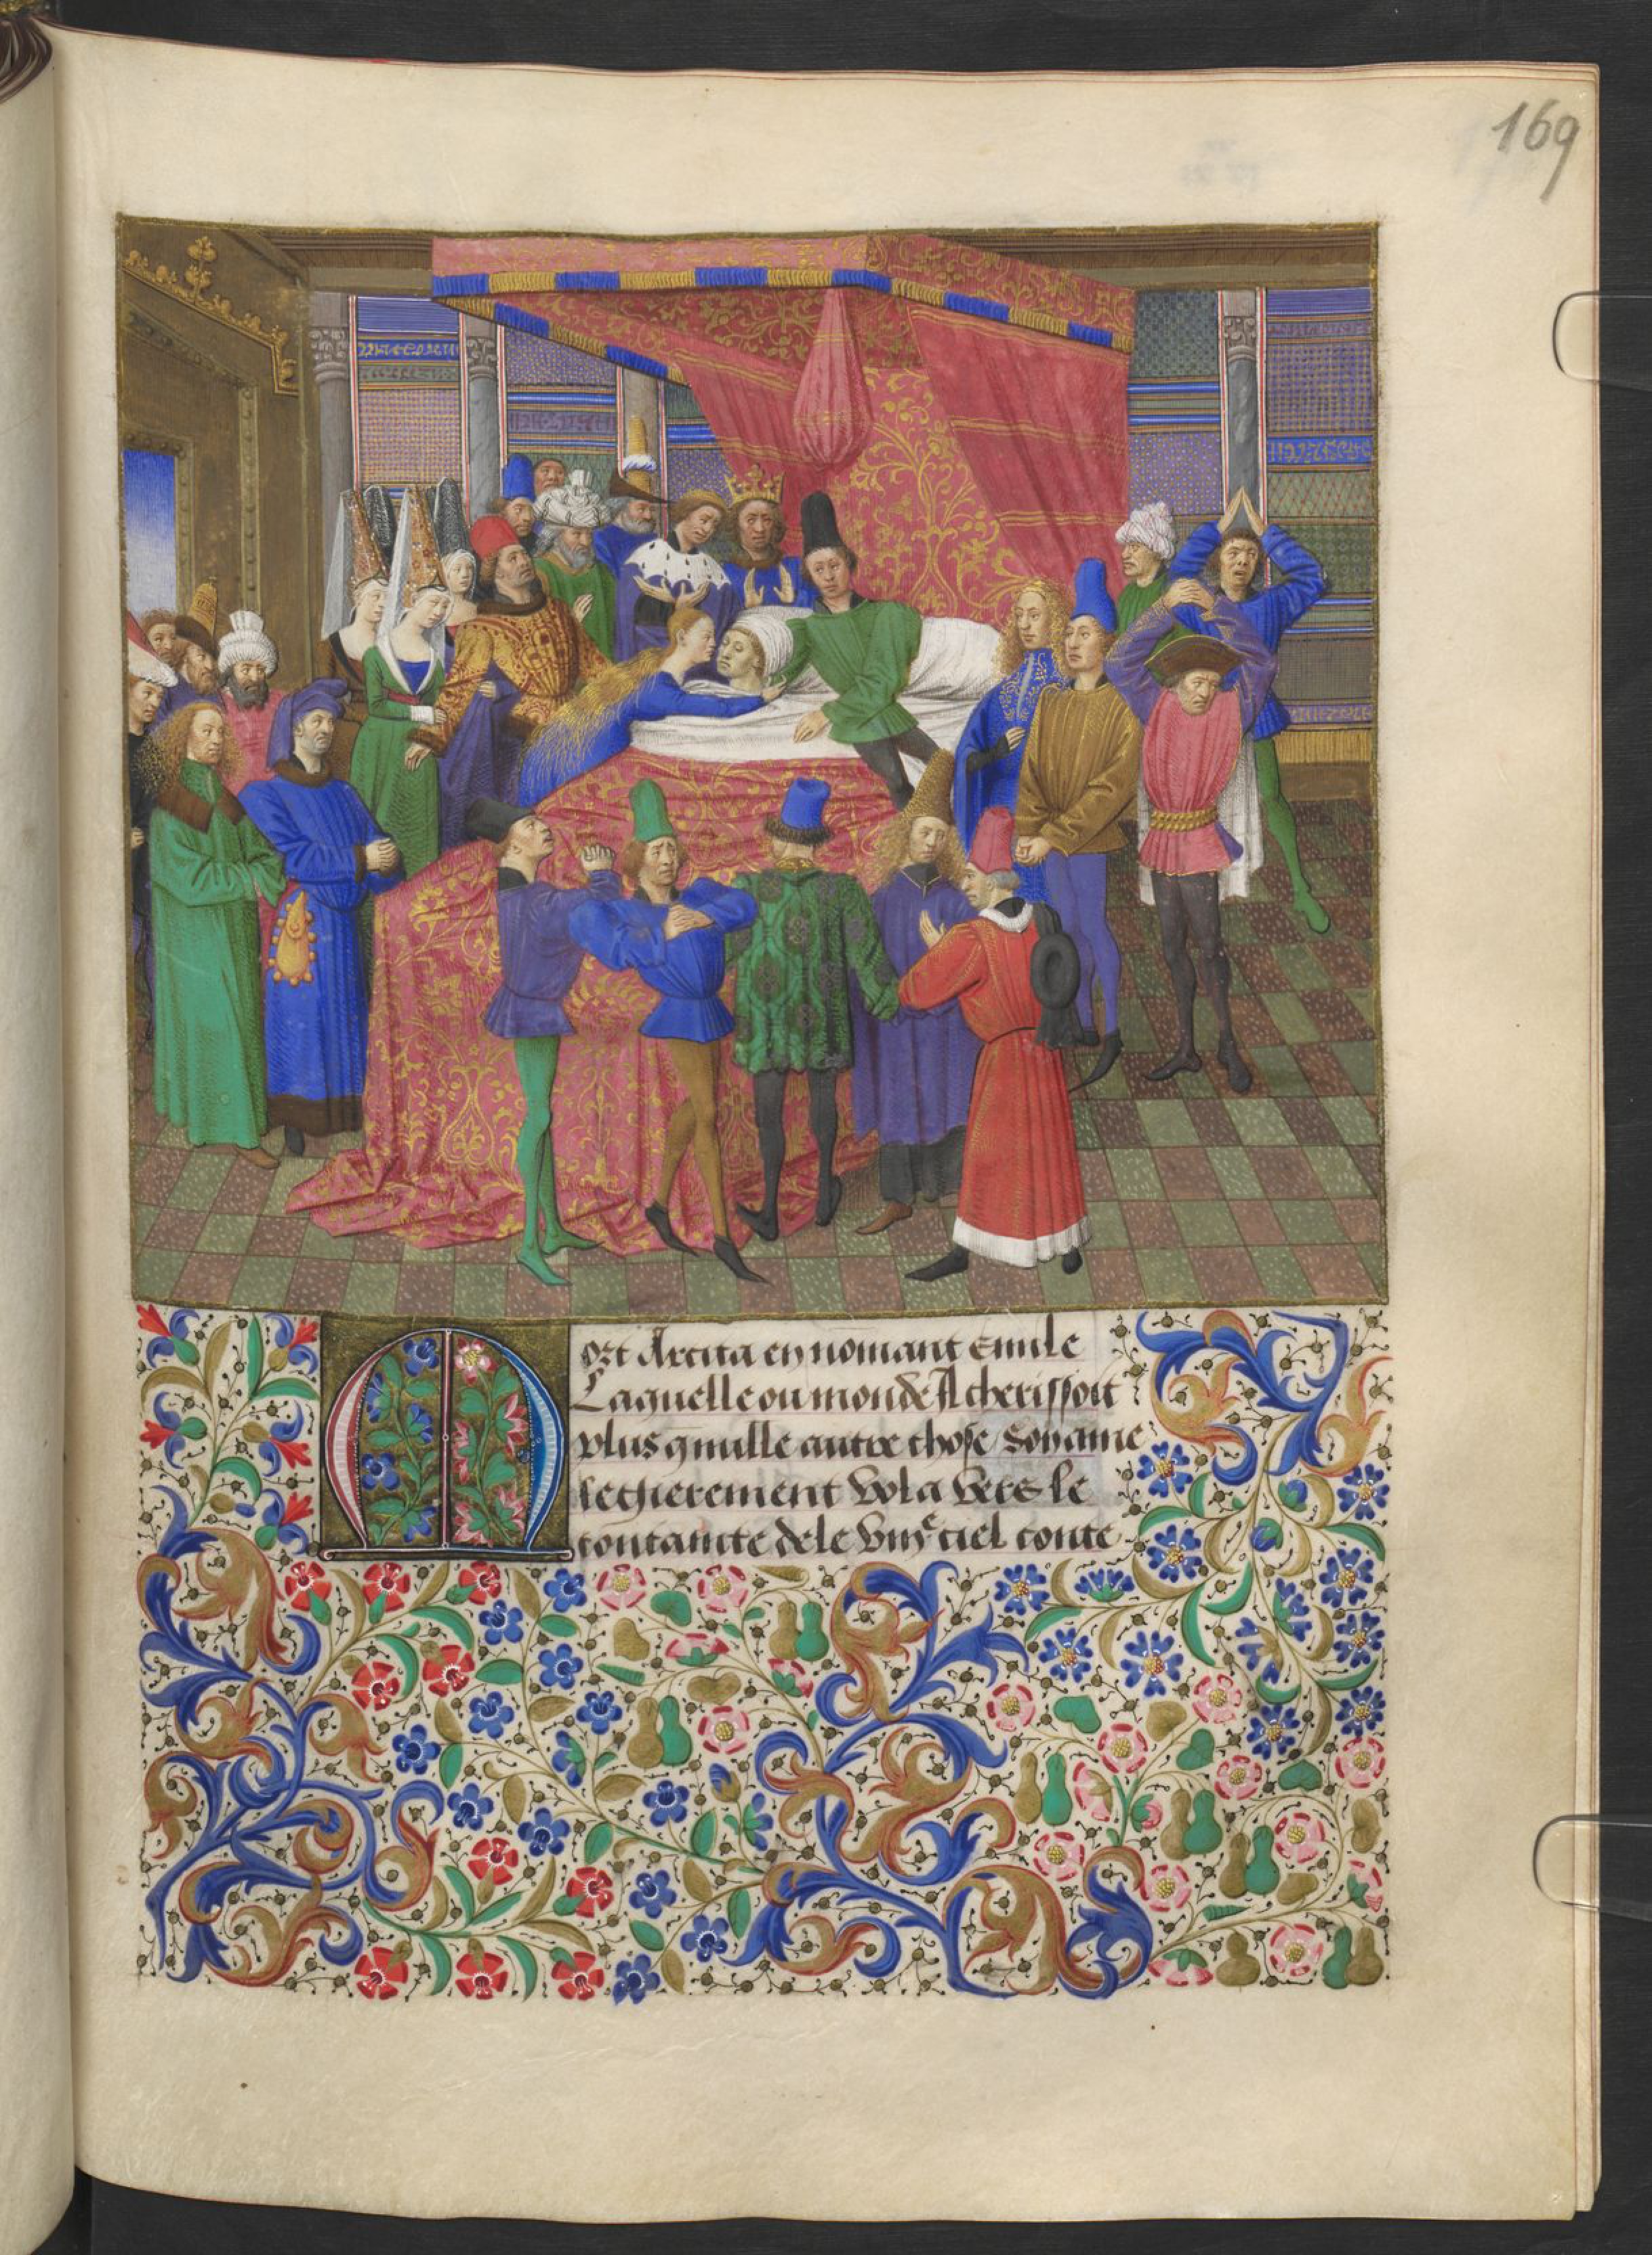 169
Mort Arcita en nomant Emile
Laquelle ou monde Il cherissoit
plus q nulle autre chose Son ame
legierement vola vers le
contauite dele viijᵉ ciel conte